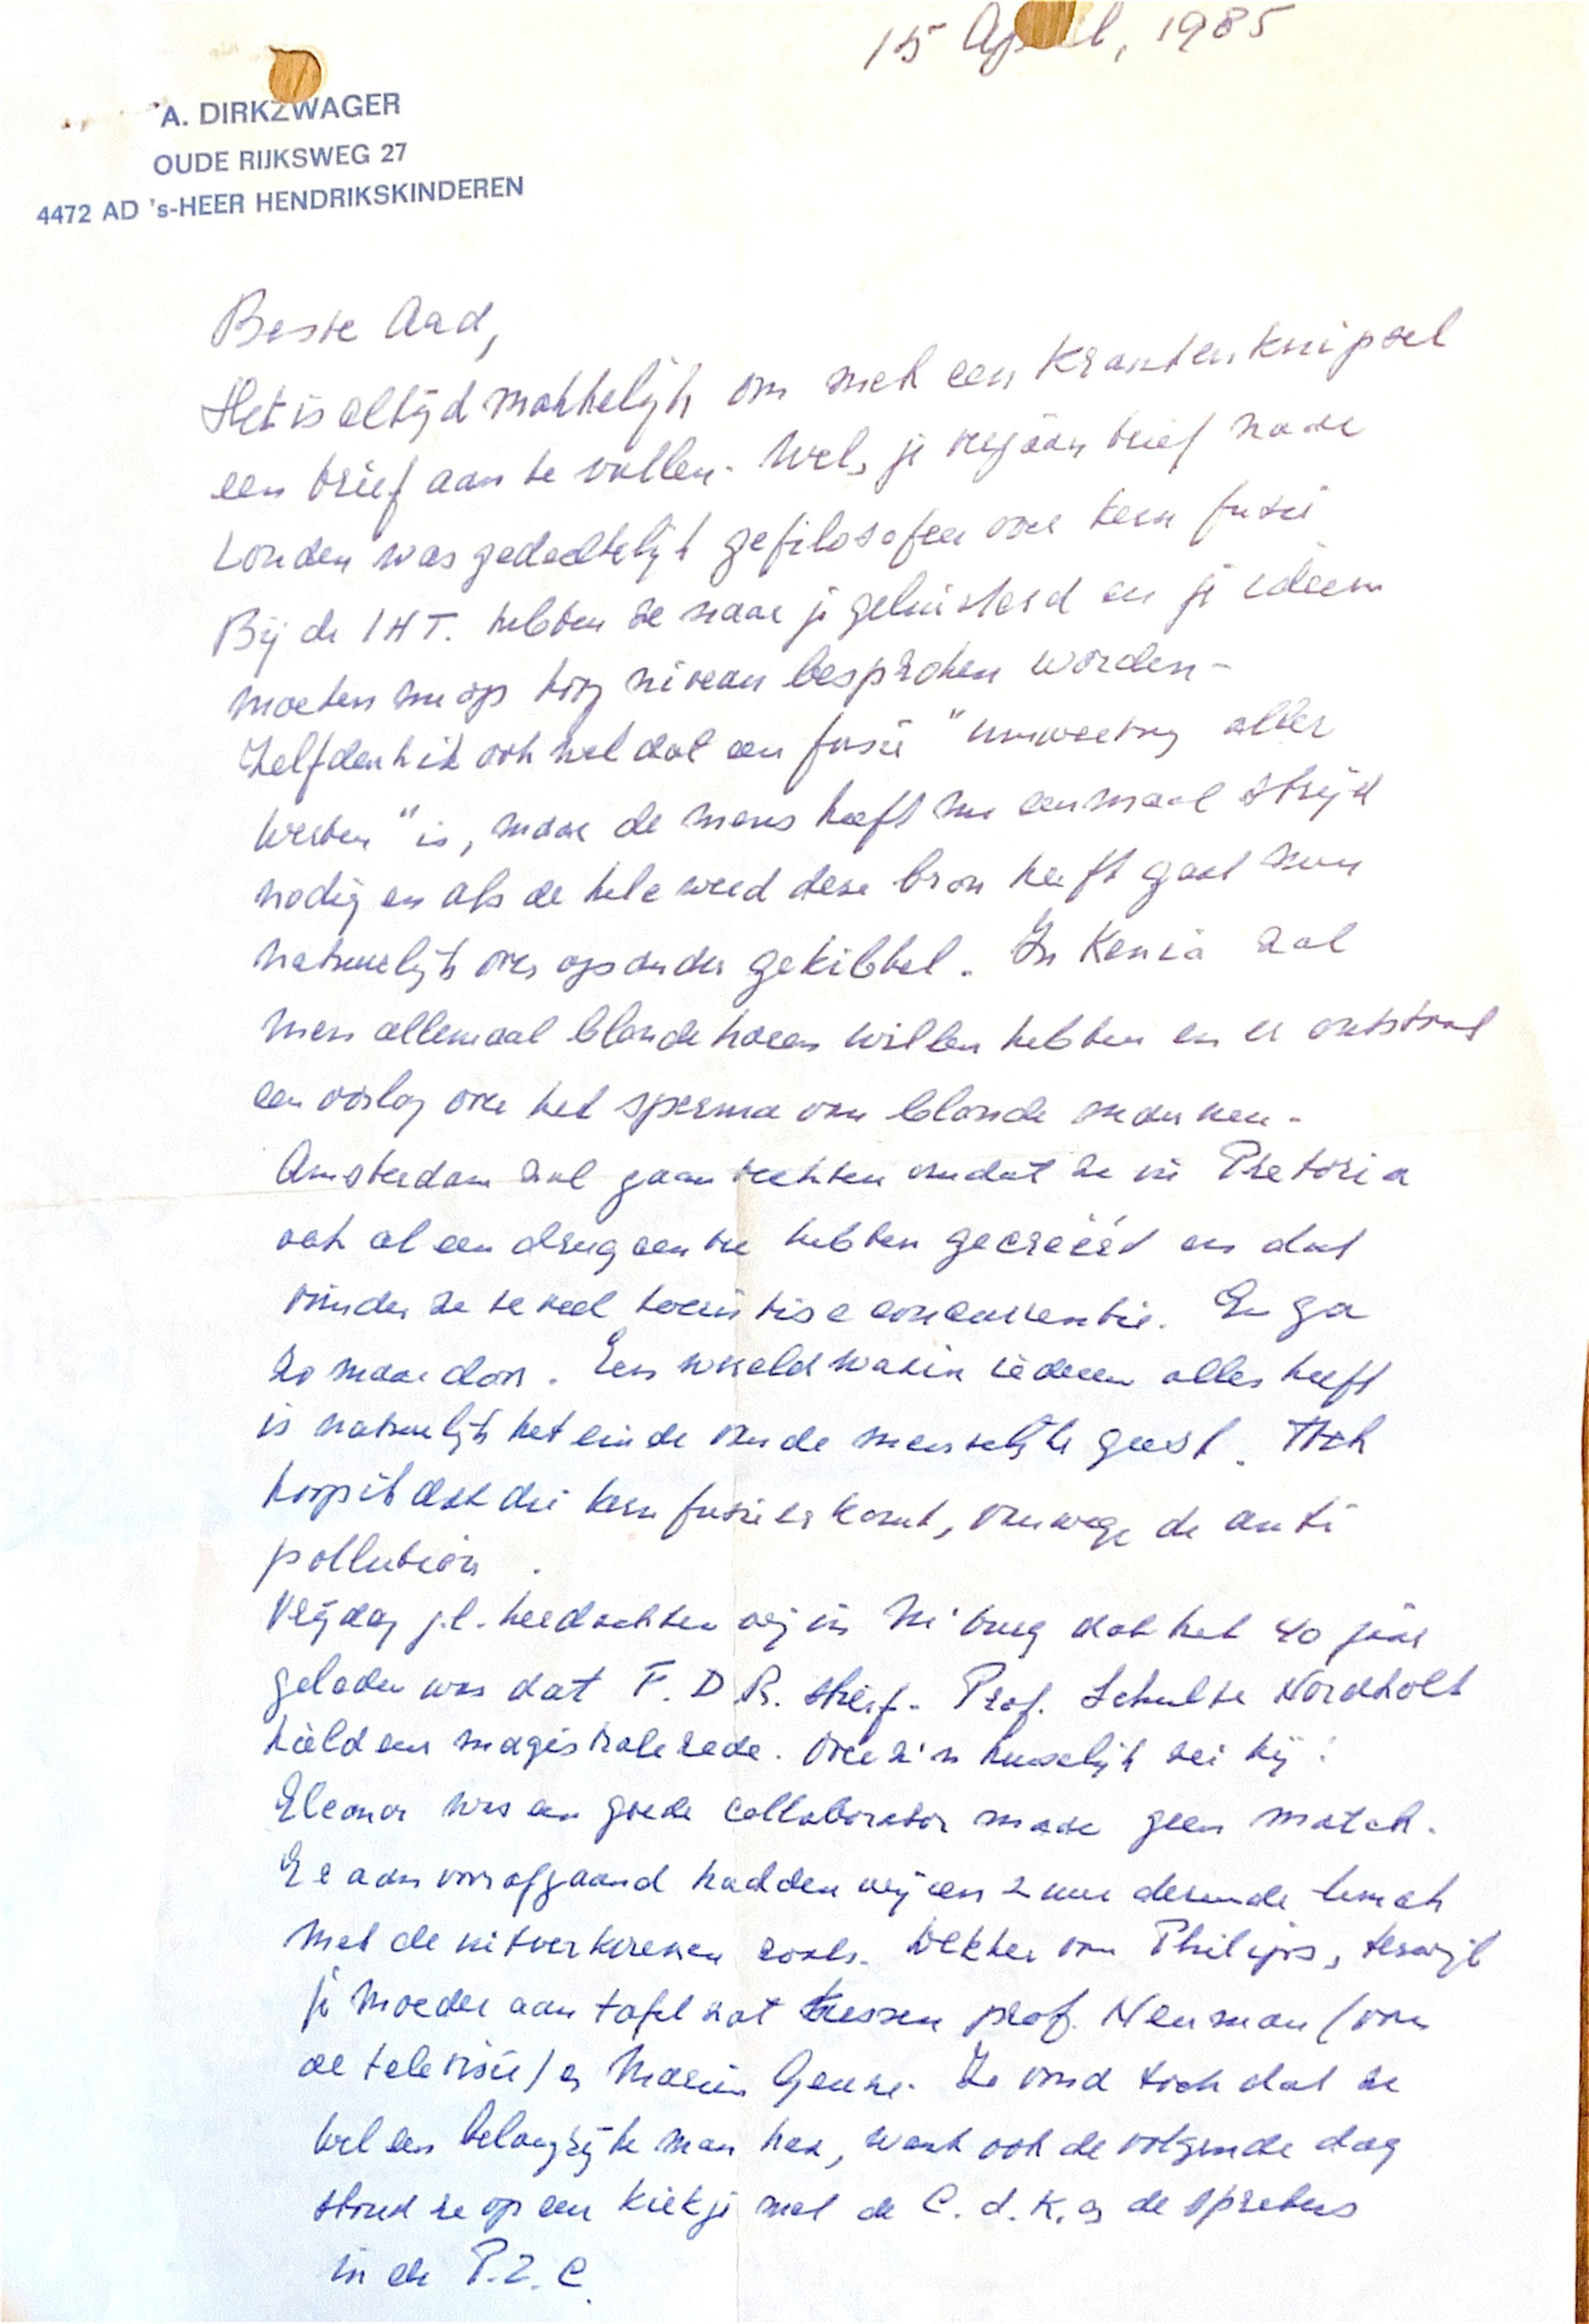 15 April, 1985
A. DIRKZWAGER
OUDE RIJKSWEG 27
4472 AD 's-HEER HENDRIKSKINDEREN
Beste Aad,
Het is altijd makkelijk om met een krantenknipsel
een brief aan te vullen. Wel, je brief naar
Londen was gedeeltelijk gefilosofeer over kern fusie
Bij de IHT. hebben ze naar je geluisterd en je ideeen
moeten nu op hoog niveau besproken worden -
Zelf denk ik ook wel dat een fusie "umwertung aller
werten" is, maar de mens heeft nu eenmaal strijd
nodig en als de hele wereld deze bron heeft gaat men
natuurlijk over op ander gekibbel. In Kenia zal
men allemaal blonde haren willen hebben en er ontstaat
een oorlog over het sperma van blonde mannen -
Amsterdam zal gaan vechten omdat ze in Pretoria
ook al een drugcentre hebben gecreëerd en dat
vinden ze te veel toeristise concurrentie. En ga
zo maar door. Een wereld waarin iedereen alles heeft
is natuurlijk het einde van de menselijke geest. Toch
hoop ik dat die kern fusie er komt, vanwege de anti
pollution.
Vrijdag j.l. herdachten wij in M'burg dat het 40 jaar
geleden was dat F.D.R. stierf. Prof. Schulte Nordholt
hield een magistrale rede. Over z'n huwelijk zei hij:
Eleonor was een goede collaborator maar geen match.
Er aan voorafgaand hadden wij een 2 uur durende lunch
met de uitverkorenen zoals. Dekker van Philips, terwijl
je moeder aan tafel zat tussen prof. Neuman (van
de televisie) en Marin Geuze. Ze vond toch dat ze
wel een belangrijke man had, want ook de volgende dag
stond ze op een kiekje met de C.d.K. en de
in de P.Z.C.